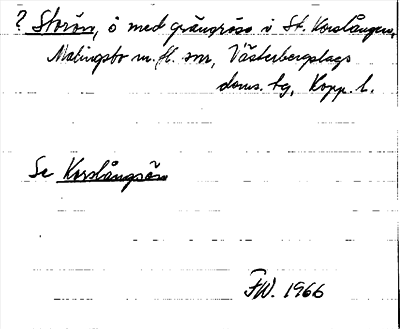 ? Storön, ö med grängräns i St. Korslången,
Malingsbo m. fl. snr, Västerbergslags
doms. tg, Kopp. l.
Se Korslångsön
FW. 1966